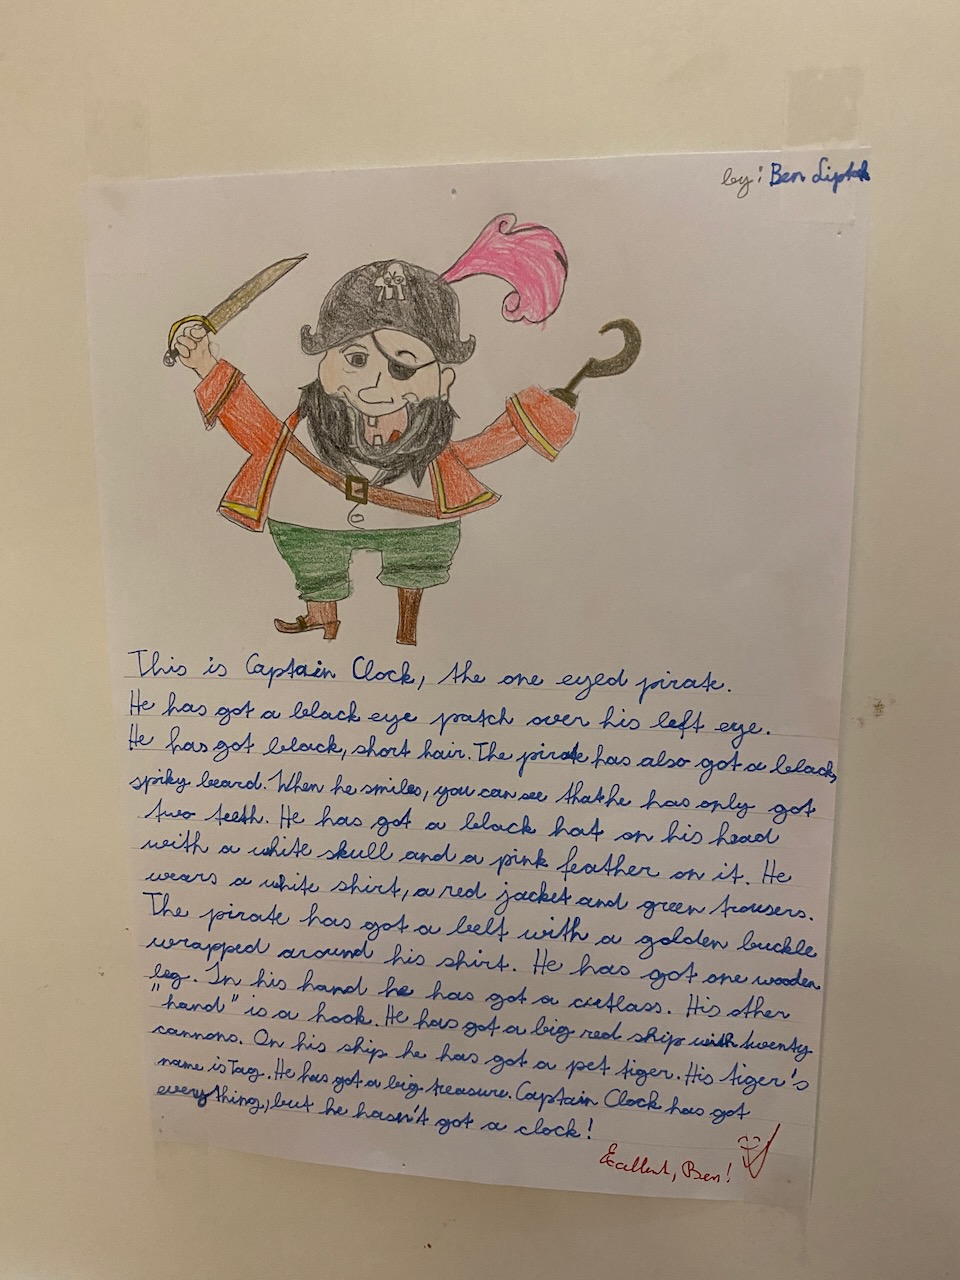 by: Ben Liptak
This is Captain Clock, the one eyed pirate.
He has got a black eye patch over his left eye.
He has got black, short hair. The pirate has also got a black,
spiky beard. When he smiles, you can see that he has only got
two teeth. He has got a black hat on his head
with a white skull and a pink feather on it. He
wears a white shirt, a red jacket and green trousers.
The pirate has got a belt with a golden buckle
wrapped around his shirt. He has got one wooden
leg. In his hand he has got a cutlass. His other
"hand" is a hook. He has got a big red ship with twenty
cannons. On his ship he has got a pet tiger. His tiger's
name is Tag. He has got a big treasure. Captain Clock has got
everything, but he hasn't got a clock!
Excellent, Ben!